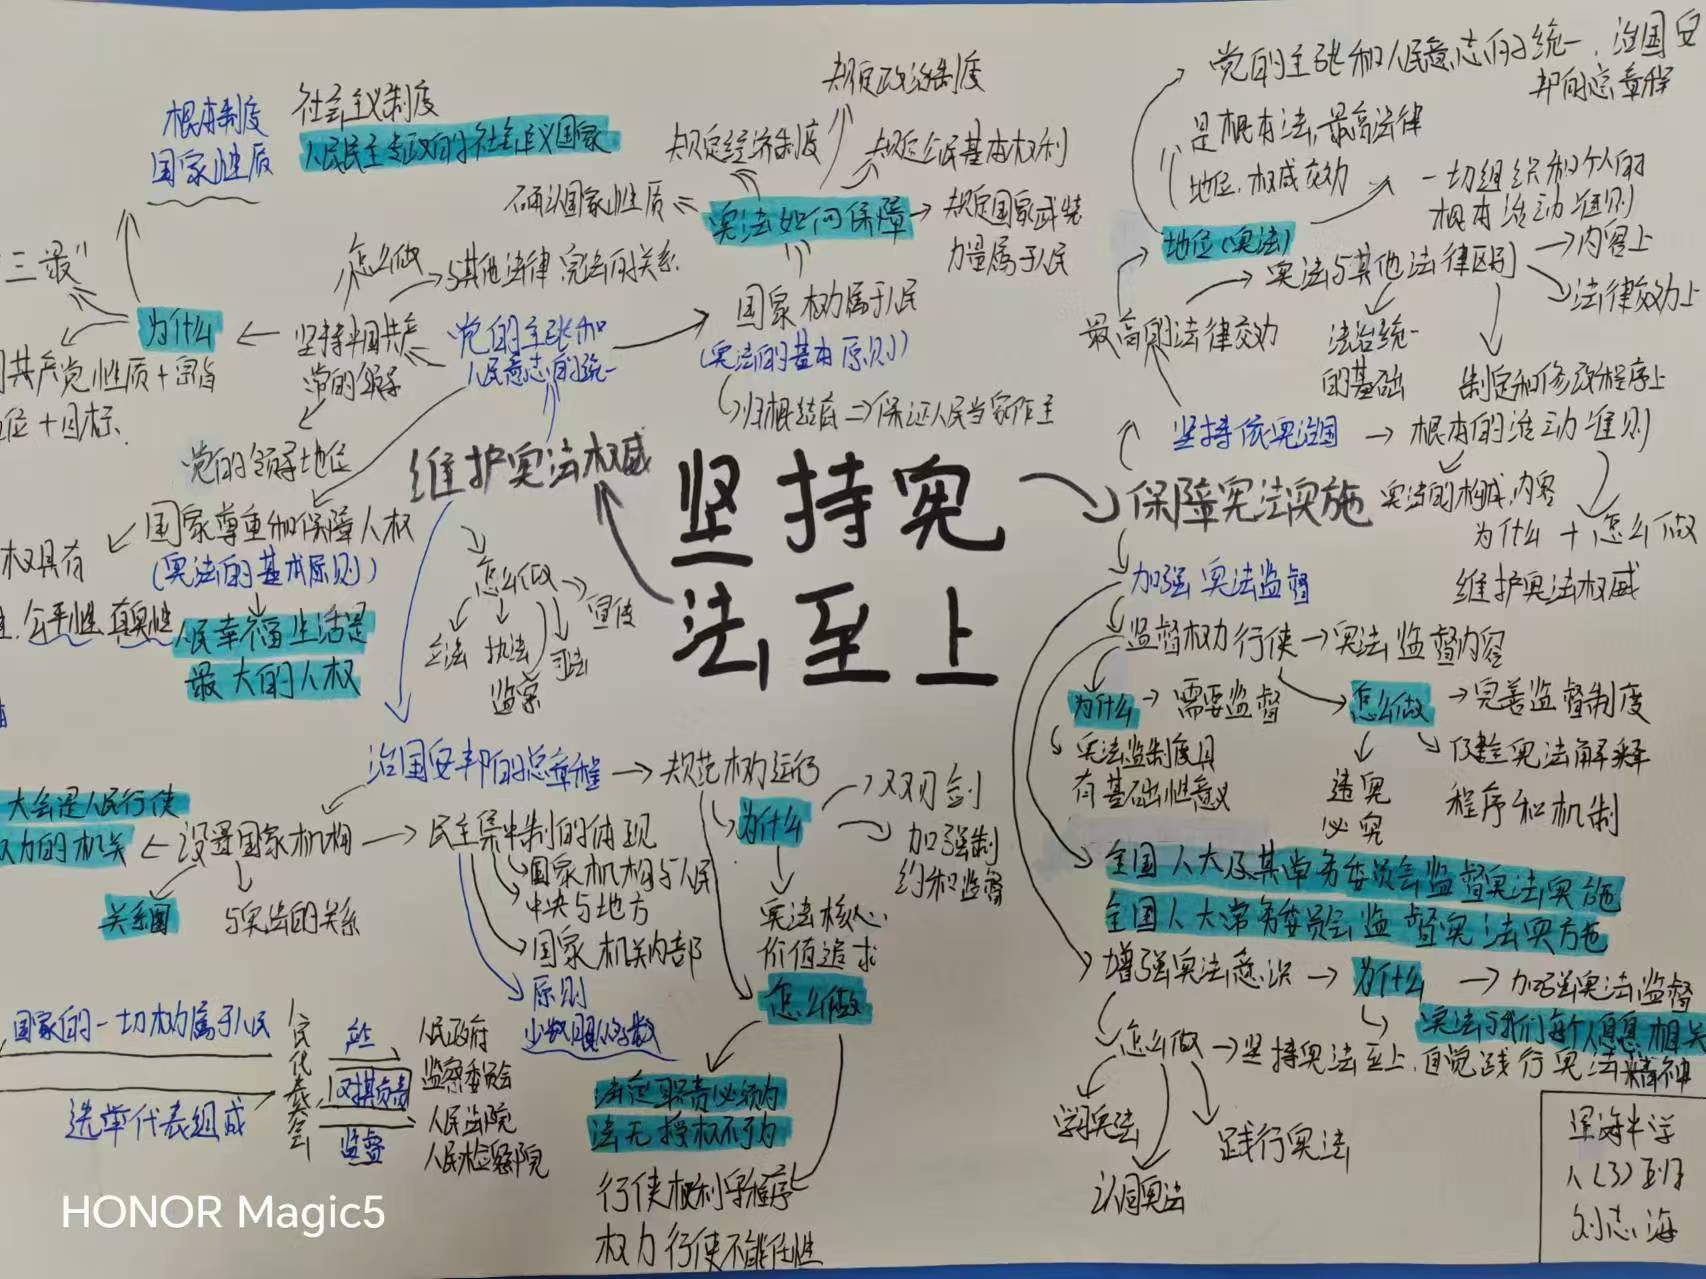 坚持宪
法至上
维护宪法权威
党的主张和
人民意志的统一
坚持中国共产
党的领导
怎么做
与其他法律 宪法的关系
为什么
根本制度
社会主义制度
国家性质
人民民主专政的社会主义国家
三最"
共产党性质+宗旨
位+目标
党的领导地位
国家权力属于人民
(宪法的基本原则)
归根结底⇒保证人民当家作主
宪法如何保障
确认国家性质
规定经济制度
规定政治制度
规定公民基本权利
规定国家武装
力量属于人民
国家尊重和保障人权
(宪法的基本原则)
权具有
公平性 真实性
人民幸福生活是
最大的人权
怎么做
立法 执法
监察
司法
宣传
治国安邦的总章程
规范权力运行
为什么
双刃剑
加强制
约和监督
宪法核心
价值追求
怎么做
法定职责必须为
法无授权不可为
行使权利守程序
权力行使不能任性
设置国家机构
大会是人民行使
权力的机关
关系图
与宪法的关系
民主集中制的体现
国家机构与人民
中央与地方
国家机关内部
原则
少数服从多数
国家的一切权力属于人民
选举代表组成
人民代表大会
产生
对其负责
监督
人民政府
监察委员会
人民法院
人民检察院
保障宪法实施
坚持依宪治国
最高的法律效力
地位(宪法)
党的主张和人民意志的统一、治国安
邦的总章程
是根本法,最高法律
地位、权威效力
一切组织和个人的
根本活动准则
宪法与其他法律区别
内容上
法律效力上
制定和修改程序上
法治统一
的基础
根本的活动准则
宪法的构成,内容
为什么+怎么做
维护宪法权威
加强宪法监督
监督权力行使→宪法监督内容
为什么
需要监督
宪法监制度具
有基础性意义
怎么做
完善监督制度
健全宪法解释
程序和机制
违宪
必究
全国人大及其常务委员会监督宪法实施
全国人大常务委员会监督宪法实施
增强宪法意识
为什么
加强宪法监督
宪法与我们每个人息息相关
怎么做
坚持宪法至上,自觉践行宪法精神
学习宪法
认同宪法
践行宪法
八(3)班
刘志海
HONOR Magic5